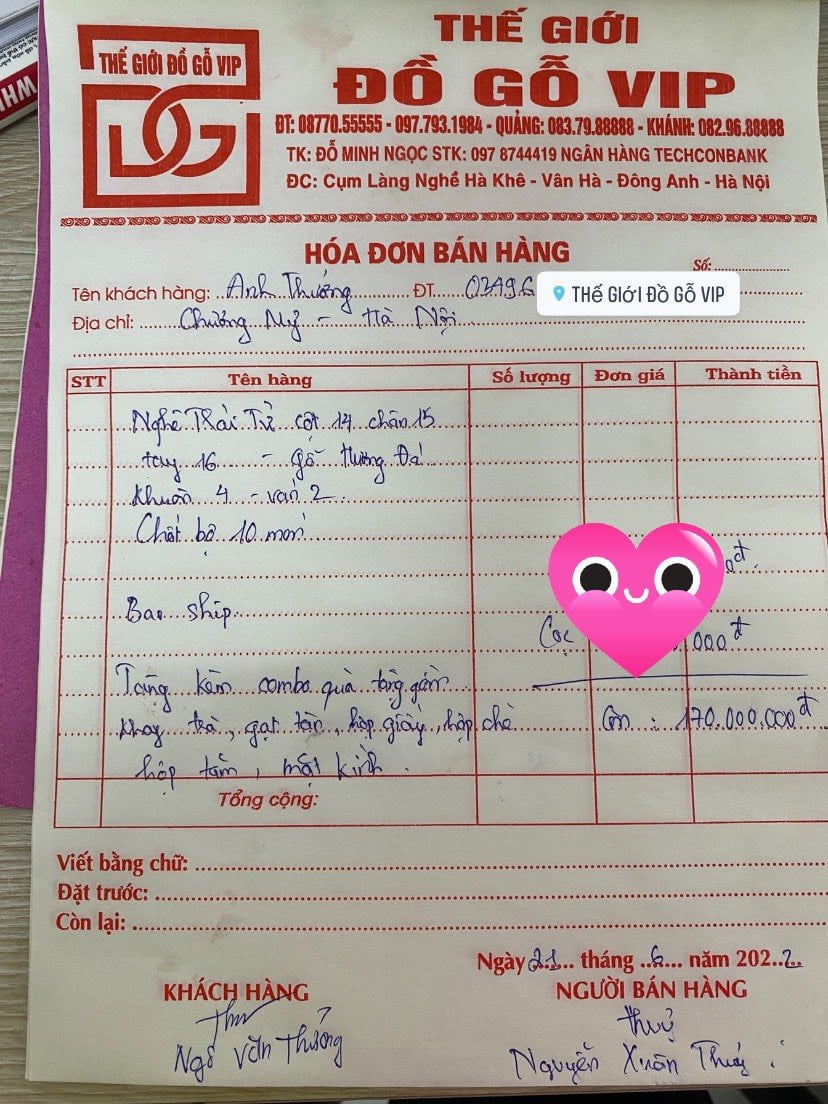 THẾ GIỚI ĐỒ GỖ VIP
DG
THẾ GIỚI
ĐỒ GỖ VIP
ĐT: 08770.55555 - 097.793.1984 - QUẢNG: 083.79.88888 - KHÁNH: 082.96.88888
TK: ĐỖ MINH NGỌC STK: 097 8744419 NGÂN HÀNG TECHCONBANK
ĐC: Cụm Làng Nghề Hà Khê - Vân Hà - Đông Anh - Hà Nội
HÓA ĐƠN BÁN HÀNG
Số:
Tên khách hàng: Anh Thưởng ĐT 0349 THẾ GIỚI ĐỒ GỖ VIP
Địa chỉ: Chương Mỹ - Hà Nội
STT Tên hàng Số lượng Đơn giá Thành tiền
Nghê Thái Tử cột 14 chân 15
tay 16 - gỗ Hương Đá
Khuôn 4 - ván 2
Chốt bộ 10 món
đ
Bao ship
Cọc 000đ
Tặng kèm combo quà tặng gồm
Khay trà, gạt tàn, hộp giấy, hộp chè Còn: 170.000.000đ
hộp tăm, mặt kính.
Tổng cộng:
Viết bằng chữ:
Đặt trước:
Còn lại:
Ngày 21 tháng 6 năm 2022
KHÁCH HÀNG NGƯỜI BÁN HÀNG
Thuý
Ngô Văn Thưởng Nguyễn Xuân Thuý
WH